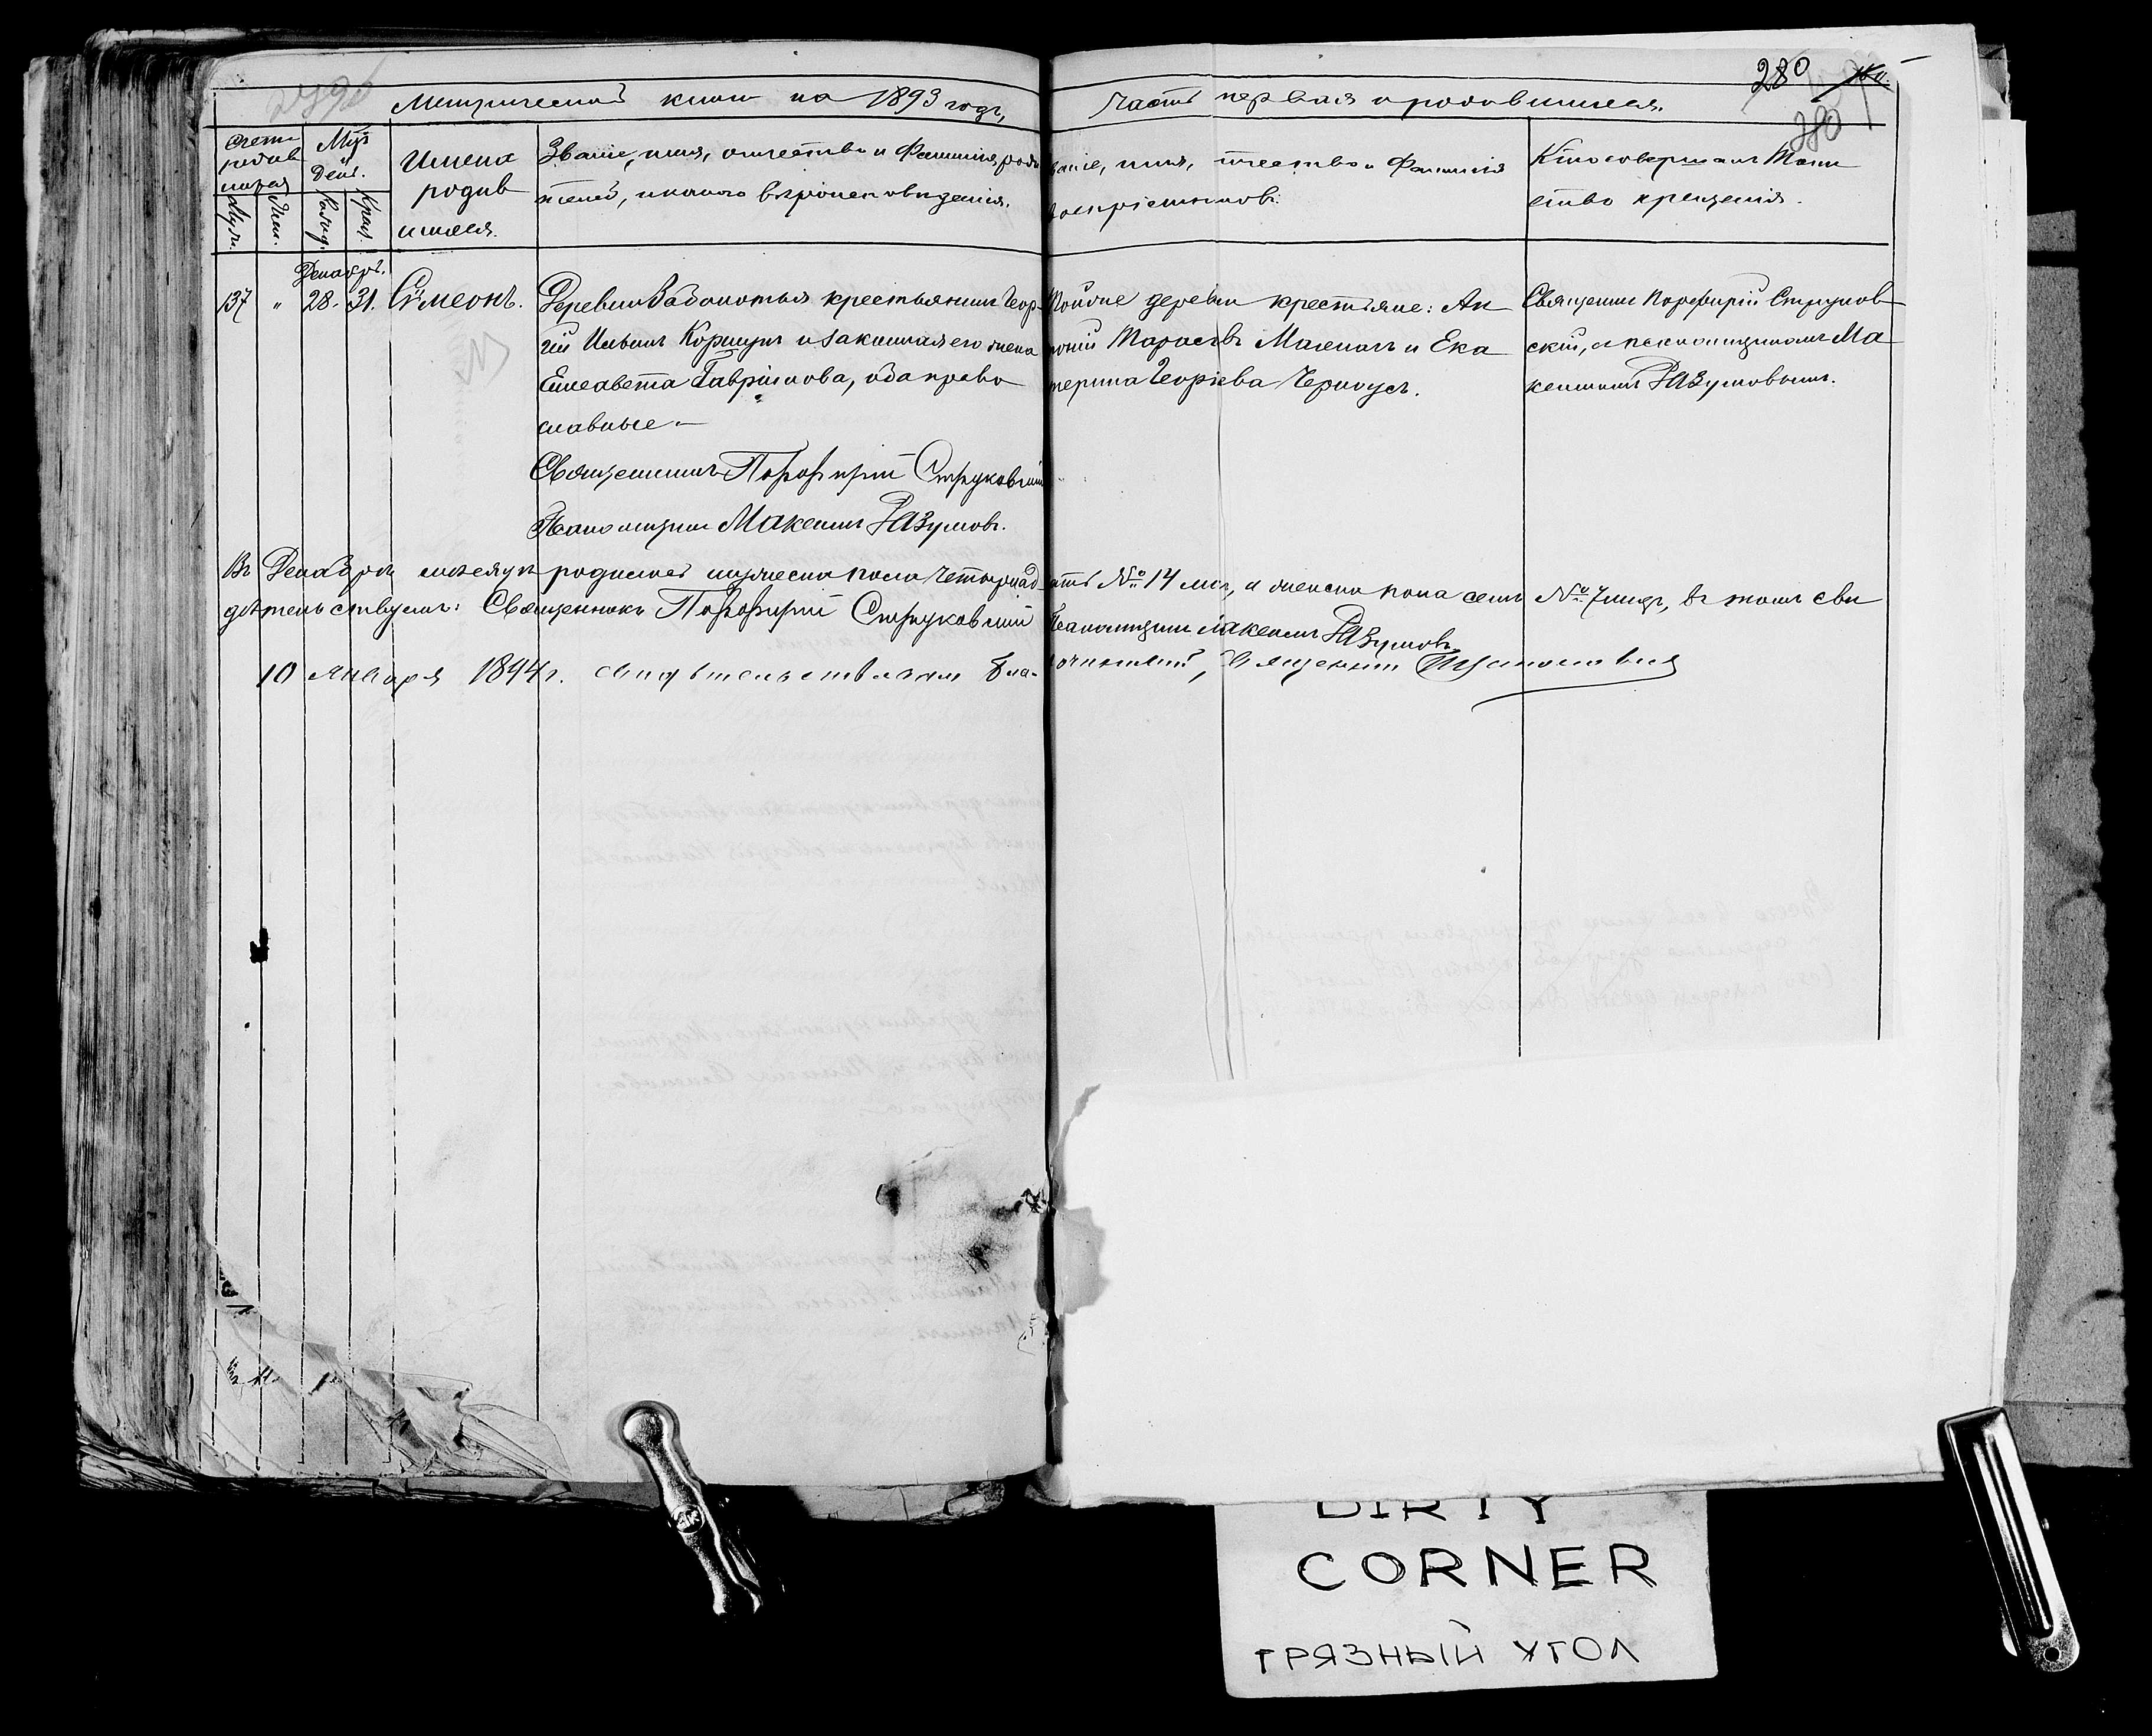 280
Метрической книги на 1893 годъ,
часть первая о родившихся.
280
Счетъ родившихся
Мѣс. и День.
Имена родившихся.
Званіе, имя, отчество и Фамилія роди
телей, и какого вѣроисповѣданія.
Званіе, имя, отчество и Фамилія
воспріемниковъ.
Кто совершалъ Таин
ство крещенія.
Муж.
Жен.
Рожд.
Крещ.
Декабрь.
137 " 28. 31. Сѵмеонъ.
Деревни Заболотья крестьянинъ Геор-
гій Коршунъ и законная его жена
Елисавета Гавріилова, оба право
славные.–
Священникъ Порфирій Струковскій
Псаломщикъ Максимъ Разумовъ.
Тойже деревни крестьяне: Ан
тоній Тарасовъ и Ека
терина Георгіева Черноусъ.
Священникъ Порфирій Струков
скій, съ псаломщикомъ Ма
ксимомъ Разумовымъ.
Въ Декабрѣ мѣсяцѣ родилось мужеска пола четырнад
цать № 14 ть, а женска пола семь № 7 мь, въ томъ сви
дѣтельствуемъ: Священникъ Порфирій Струковскій
Псаломщикъ Максимъ Разумовъ
10 Января 1894 г. свидѣтельствовалъ Бла-
гочинный, Священникъ
DIRTY
CORNER
ГРЯЗНЫЙ УГОЛ